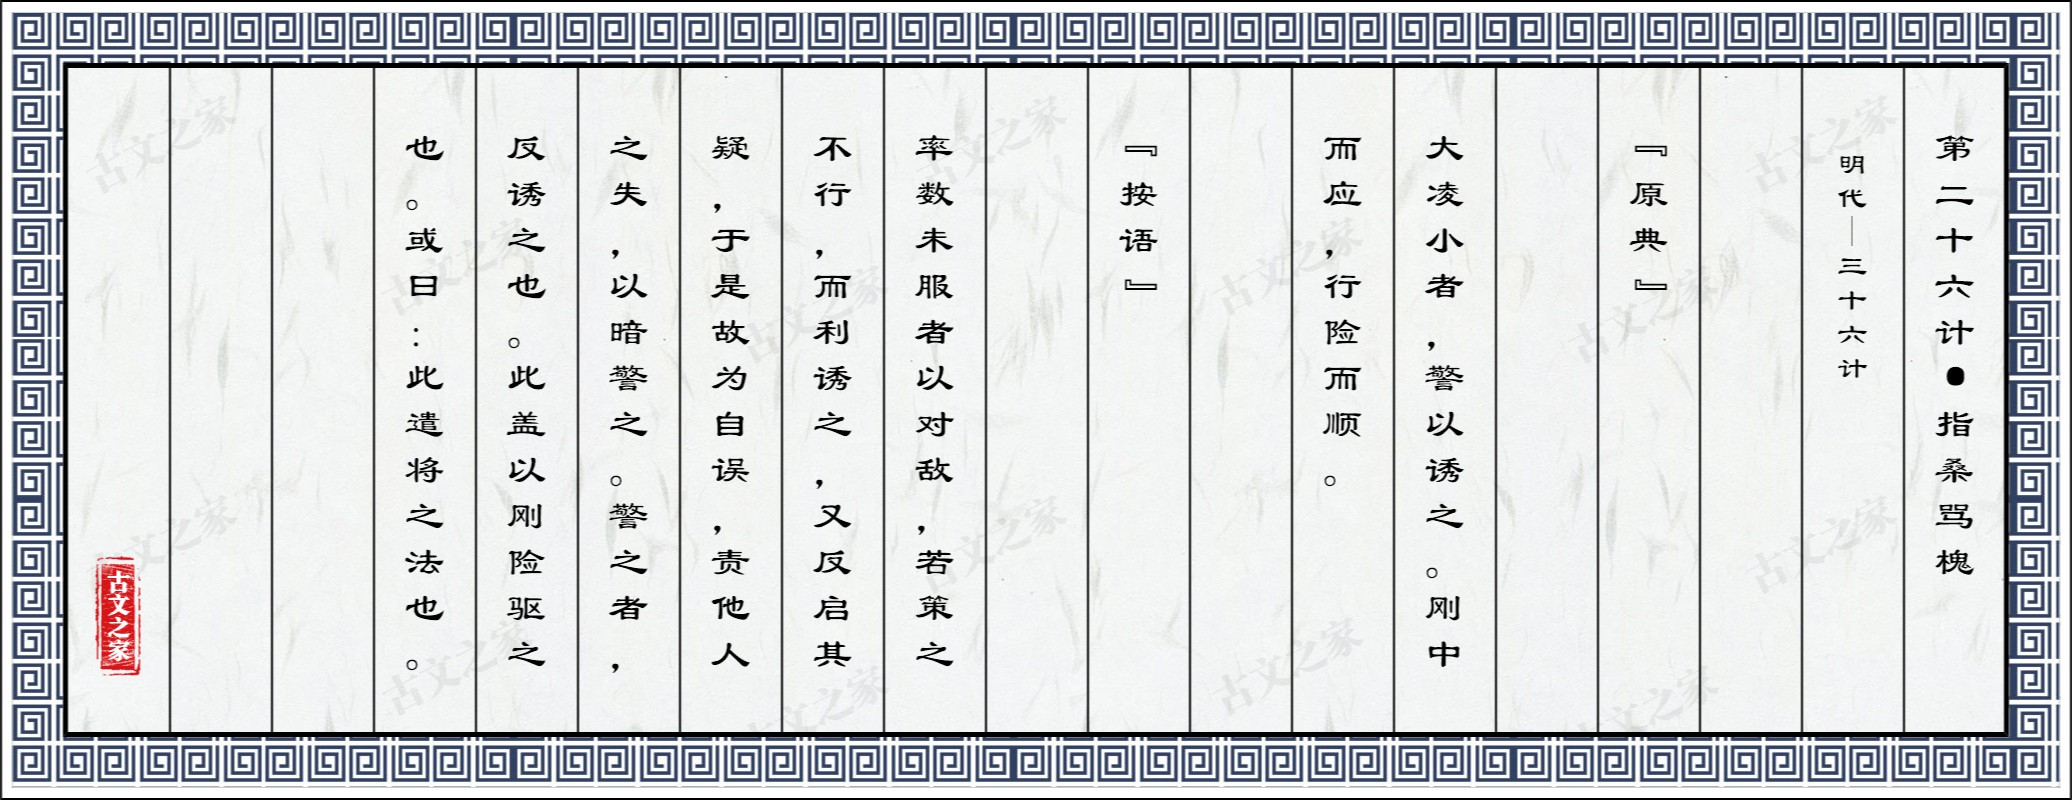 第二十六计●指桑骂槐
明代—三十六计
『原典』
大凌小者，警以诱之。刚中
而应，行险而顺。
『按语』
率数未服者以对敌，若策之
不行，而利诱之，又反启其
疑，于是故为自误，责他人
之失，以暗警之。警之者，
反诱之也。此盖以刚险驱之
也。或曰：此遣将之法也。
古文之家